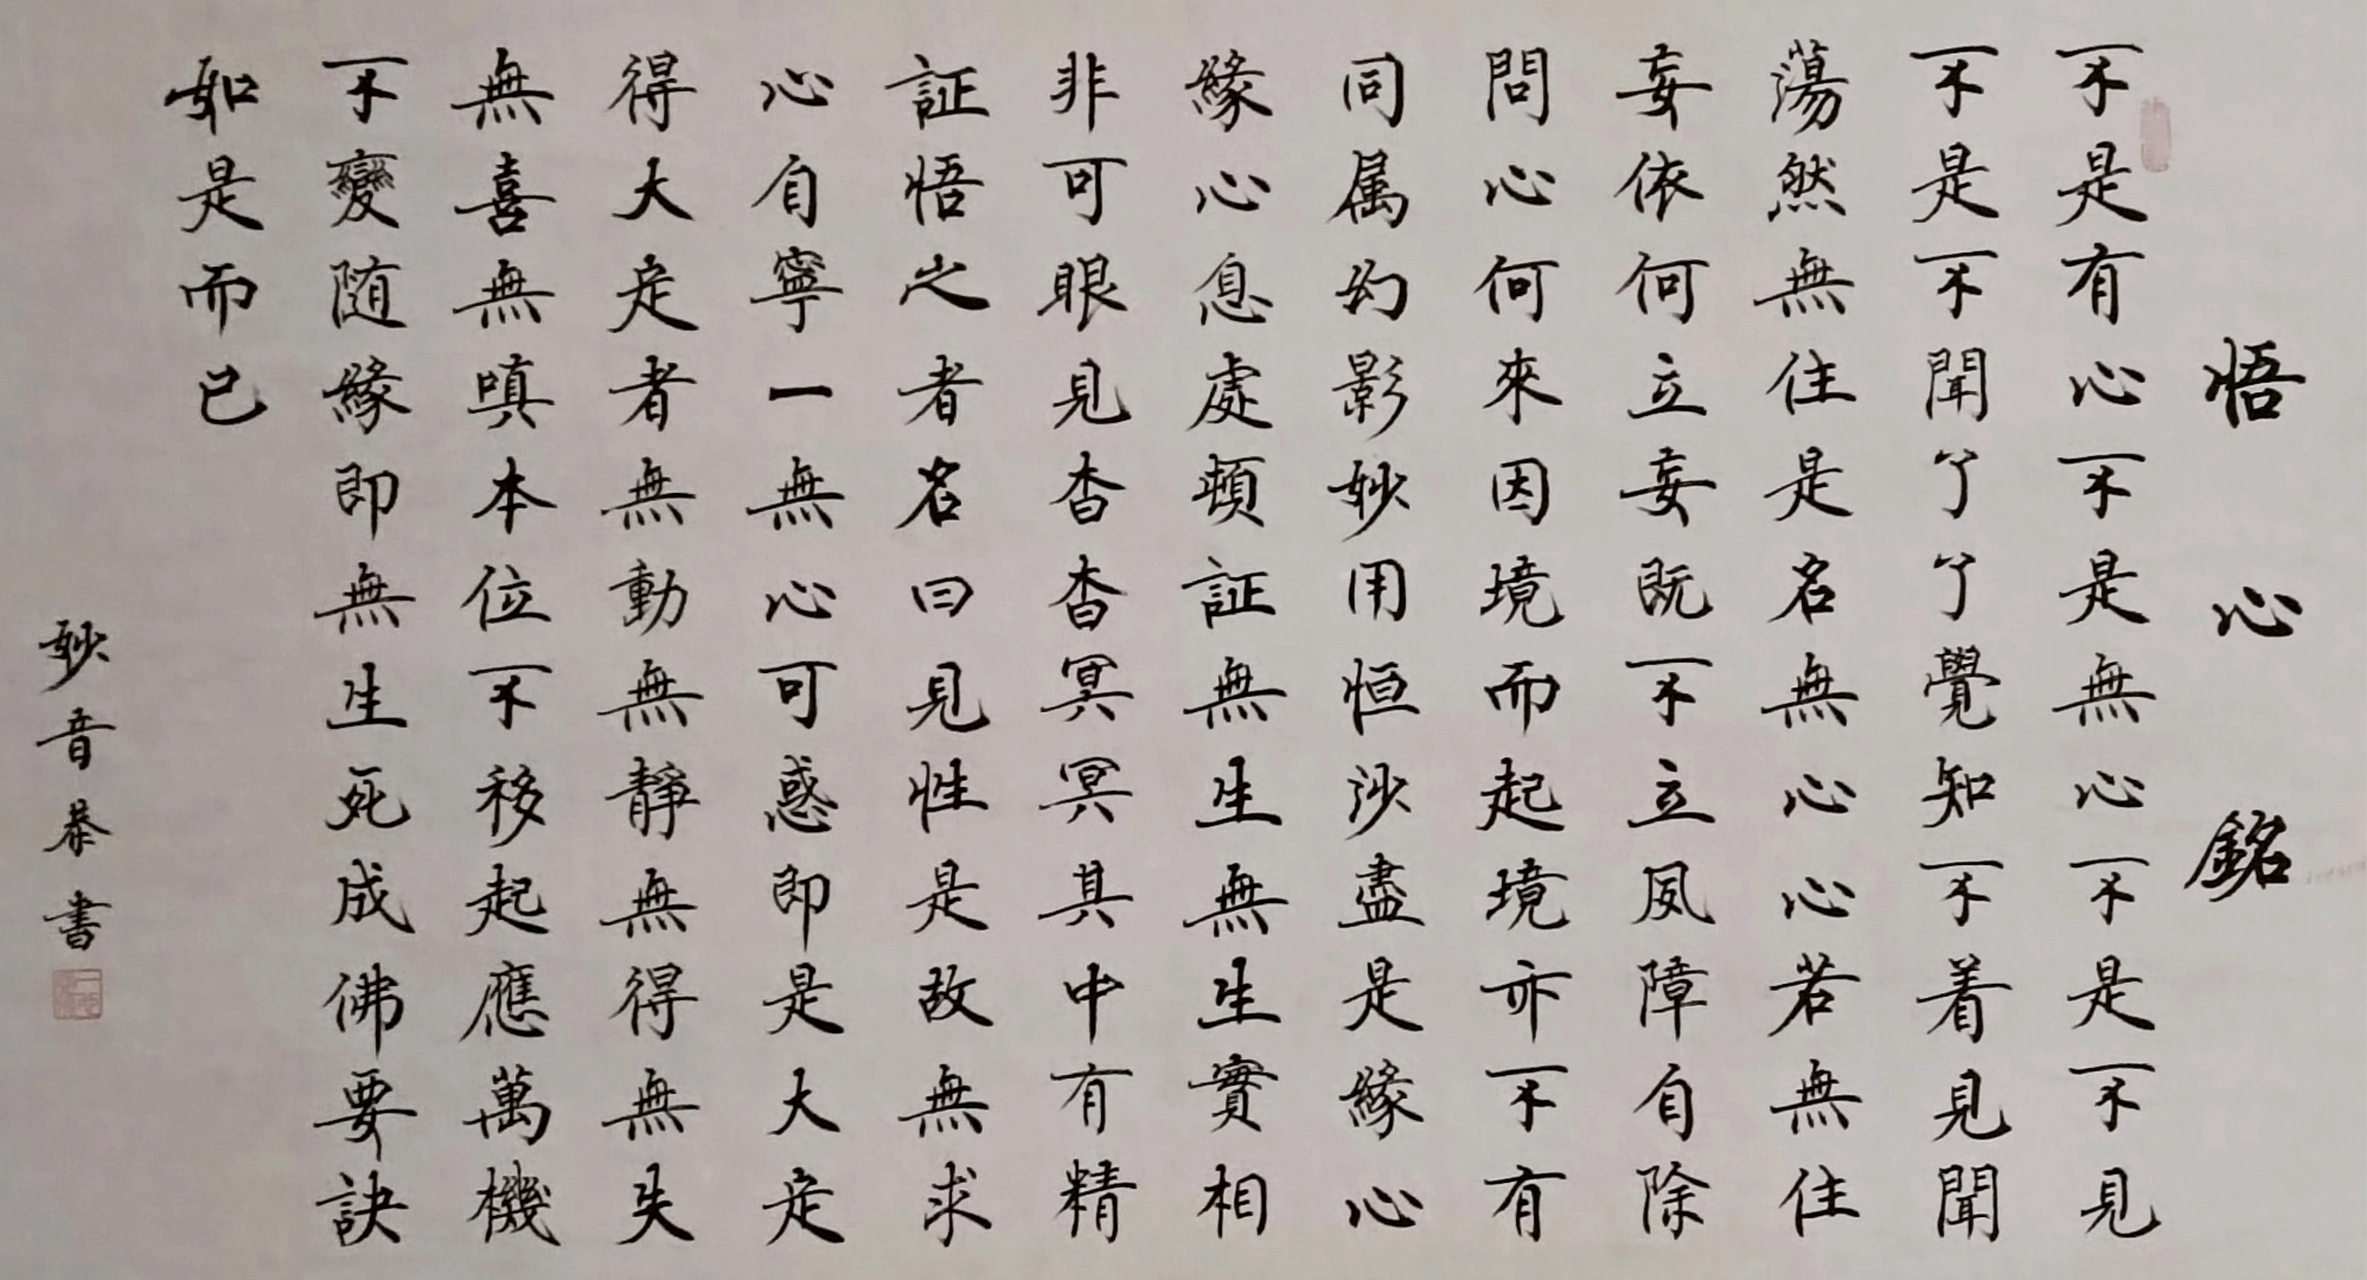 悟心銘
不是有心不是無心不是不見
不是不聞了了覺知不着見聞
蕩然無住是名無心心若無住
妄依何立妄既不立夙障自除
問心何來因境而起境亦不有
同属幻影妙用恒沙盡是緣心
緣心息處頓証無生無生實相
非可眼見杳杳冥冥其中有精
証悟之者名曰見性是故無求
心自寧一無心可惑即是大定
得大定者無動無靜無得無失
無喜無嗔本位不移起應萬機
不變随緣即無生死成佛要訣
如是而已
妙音恭書